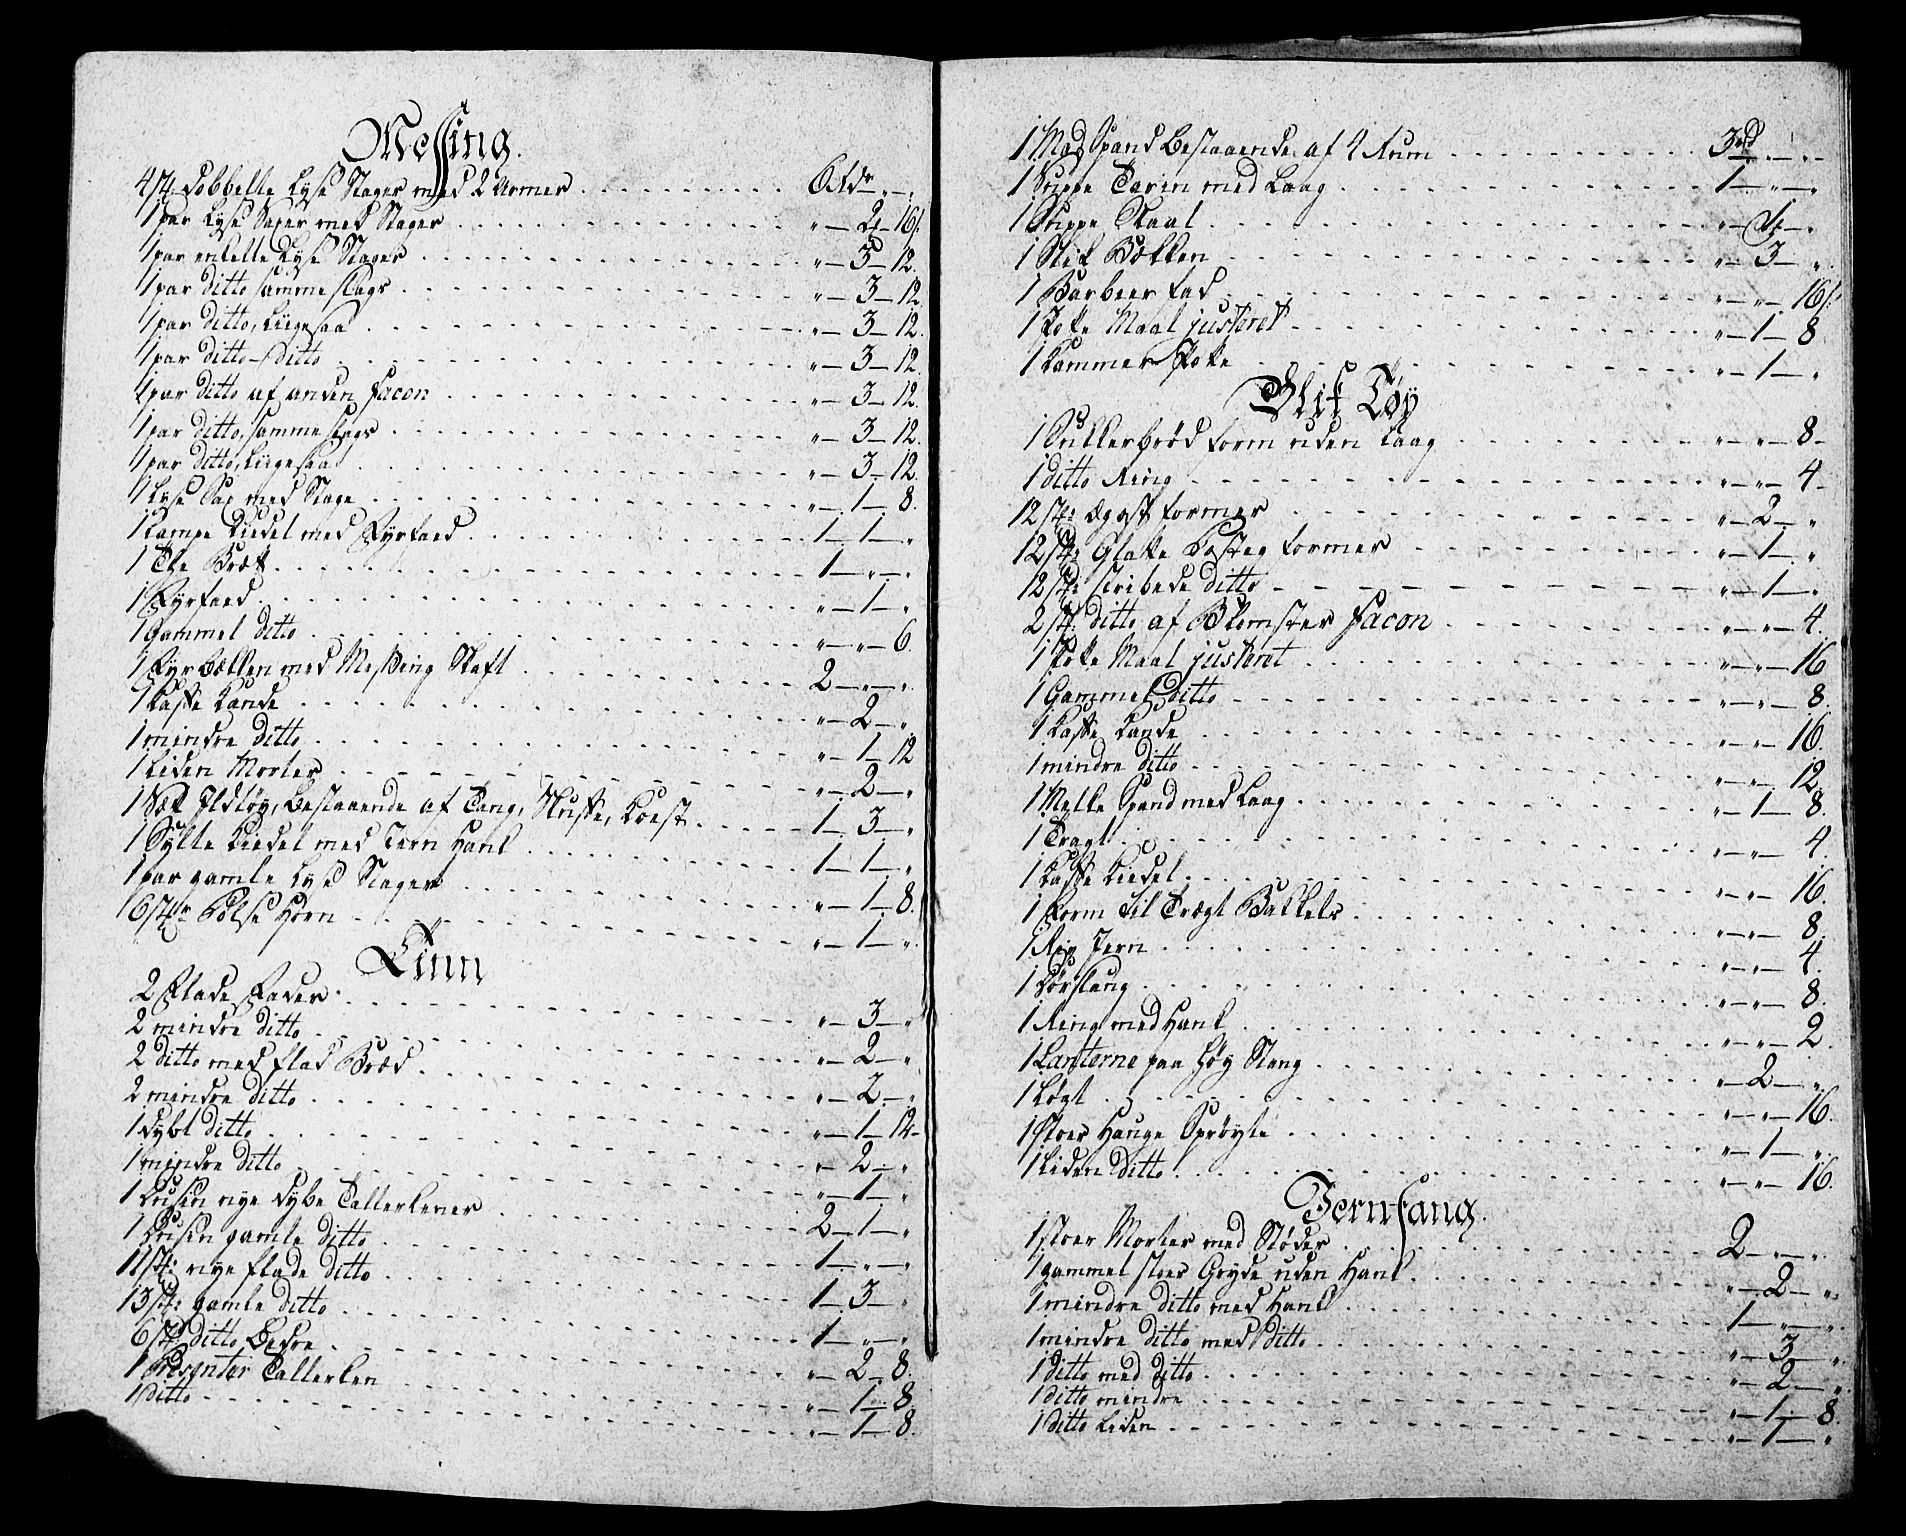 Messing.
4 st: dobbelte Lyse Stager med 2 Armer 6 rdr „ „
1 par Lyse Saxer med Stager „ 2 16 s.
1 par enkelte Lyse Stager „ 3 12.
1 par ditto samme slags „ 3 12
1 par ditto, Liigesaa „ 3 12.
1 par ditto ditto „ 3 12.
1 par ditto af anden Facon „ 3 12.
1 par ditto, samme slags „ 3 12.
1 par ditto, Liigesaa „ 3 12
1 Lyse Sax med Stage „ 1 8.
1 Lampe Kiedel med Fyrfaed 1 1 „
1 The Bræt 1 „ „
1 Fyrfaed „ 1 „
1 Gammel ditto „ „ 6.
1 Fyrbækken med Messing Skaft 2 „ „
1 Kaffe Kande „ 2 „
1 mindre ditto „ 1 12
1 liden Morter „ 2 „
1 Sæt Ildtøy, bestaaende af Tang, Skuffe, Koest 1 3 „
1 Sylte Kiedel med Jern Hank 1 1 „
1 par gamle Lyse Stager „ 1 8.
16 st: Pølse Horn „ 1 „
Tinn
2 Flade Fader „ 3 „
2 mindre ditto „ 2 „
2 ditto med flad Bræd „ 2 „
2 mindre ditto „ 1 12
1 Dybt ditto „ 2 „
1 mindre ditto „ 1 „
1 Dusin nye dybe Tallerkener 2 1 „
1 Dusin gamle ditto 1 „ „
11 st: nye flade ditto 1 3 „
13 st: gamle ditto 1 „ „
6 st: ditto Bedre „ 2 8.
1 Presenter Tallerken „ 1 8.
1 ditto „ 1 8.
1 Mad Spand bestaaende af 4 Rum 3 rd „ „
1 Suppe Terin med Laag 1 „ „
1 Suppe Skaal „ 4 „
1 Stik Bækken „ 3 „
1 Barbeer fad „ „ 16 s.
1 Potte Maal justeret „ 1 8
1 Kammer Potte „ 1 „
Blik Tøy
1 Sukkerbrød form uden Laag „ „ 8
1 ditto Ring „ „ 4
12 st: former „ 2 „
12 st: Glatte former „ 1 „
12 st: stribede ditto „ 1 „
2 st: ditto af Blomster Facon „ „ 4.
1 Potte Maal justeret „ „ 16
1 Gammel ditto „ „ 8.
1 Kaffe Kande „ „ 16.
1 mindre ditto „ „ 12.
1 Melke Spand med Laag „ 1 8.
1 Tragt „ „ 4.
1 Kaffe Kiedel „ „ 16.
1 Form til Tragt Bakkels „ „ 8.
1 Riv Jern „ „ 4.
1 Dørslaug „ „ 8.
1 Ring med Hank „ „ 2.
1 Lanterne paa høy Stang „ 2 „
1 Løgt „ „ 16.
1 stoer Hauge Sprøyte „ 1 „
1 liden ditto „ „ 16.
Jernfang.
1 stoer Morter med Støder 2 „ „
1 gammel stoer Gryde uden Hank „ 2 „
1 mindre ditto med Hank 1 „ „
1 mindre ditto med ditto „ 3 „
1 ditto med ditto „ 2 „
1 ditto mindre „ 1 8.
1 ditto liden „ 1 „